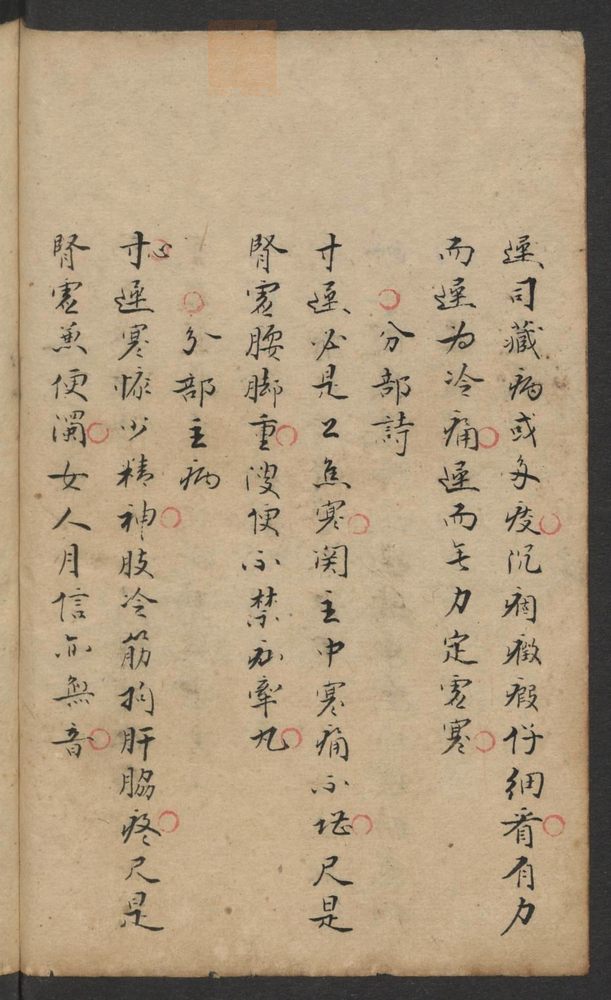 遲司藏病或多痰沉痼癥瘕仔細看有力
而遲為冷痛遲而无力定虛寒
分部詩
寸遲必是上焦寒関主中寒痛不堪尺是
腎虛腰脚重溲便不禁疝牽丸
分部主病
寸心遲寒慘少精神肢冷筋拘肝脇疼尺是
腎虛兼便濁女人月信亦無音